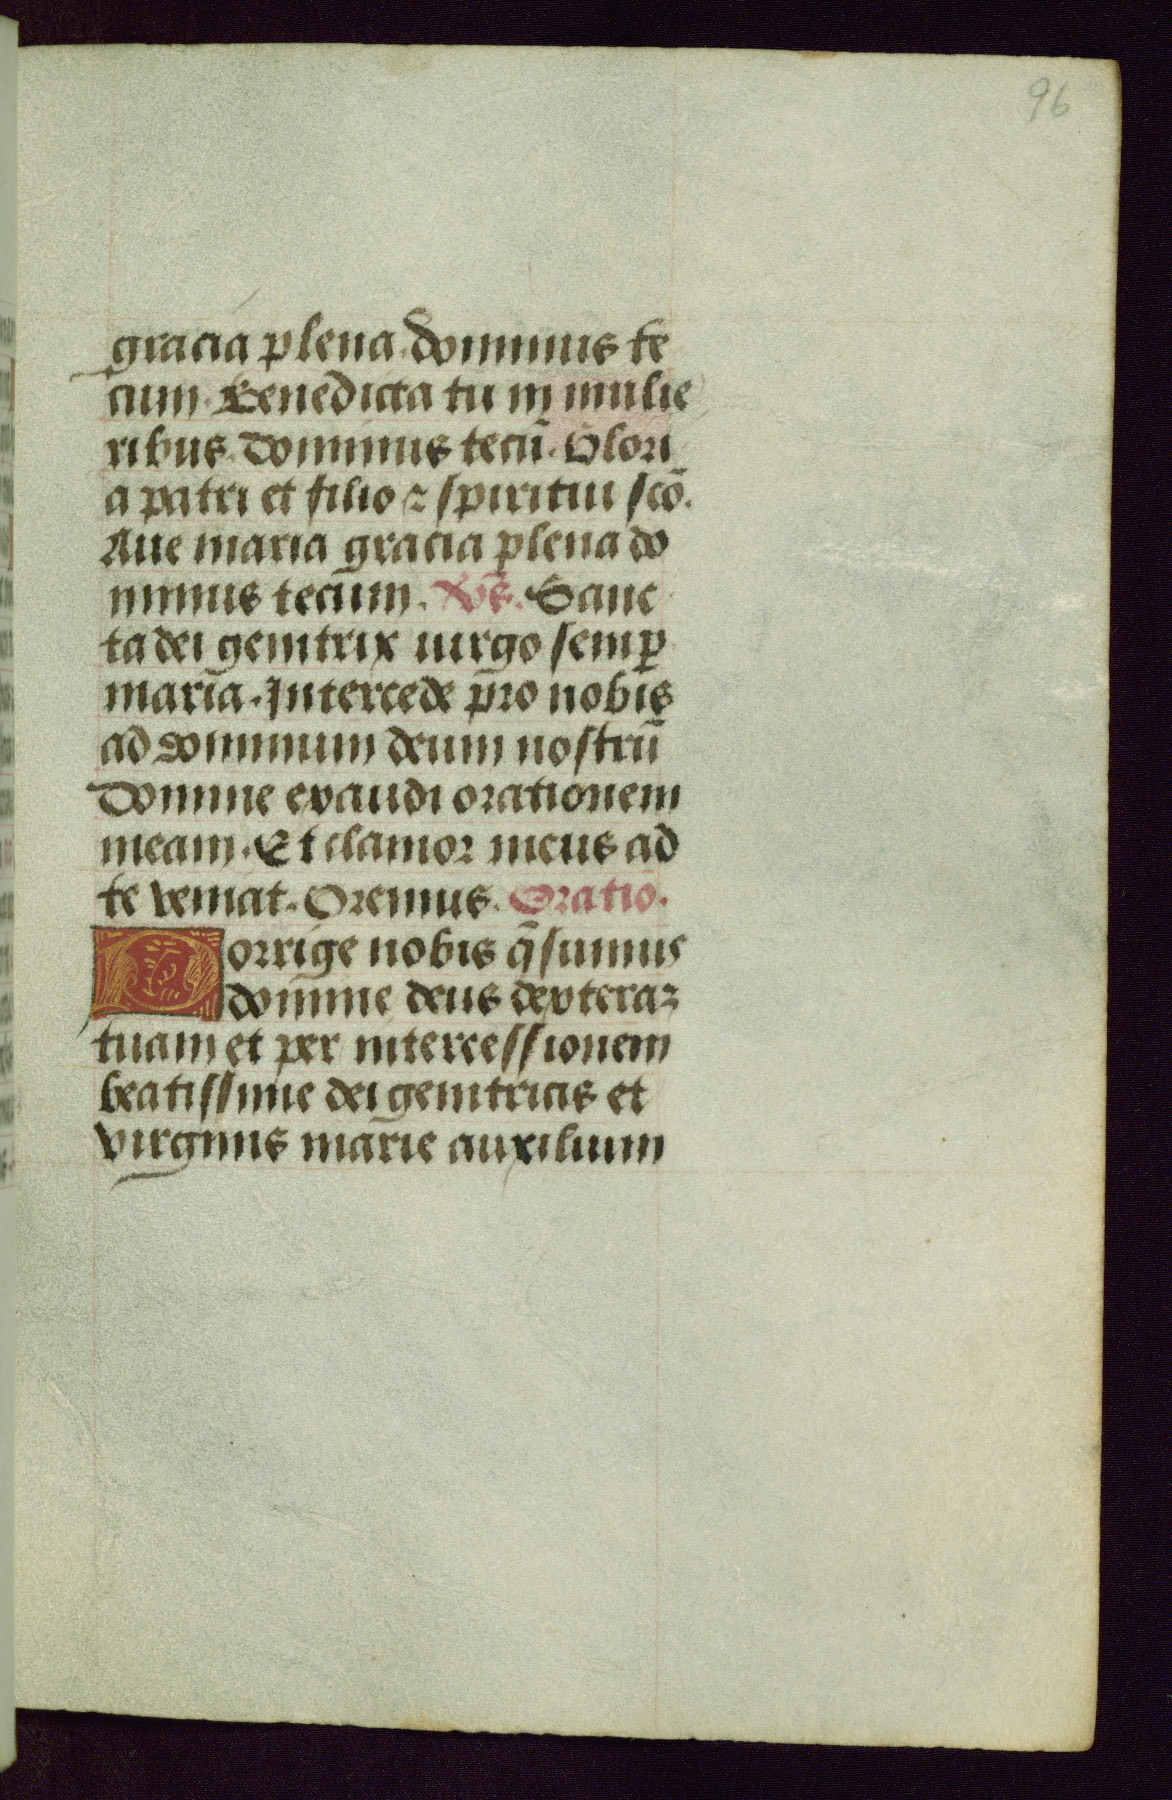 96
gracia plena. dominus te
cum. Benedicta tu in mulie
ribus. dominus tecū. Glori
a patri et filio ⁊ spiritui scō.
Aue maria gracia plena do
minus tecum. Vs̄. Sanc
ta dei genitrix uirgo semꝑ
maria. Intercede pro nobis
ad dominum deum nostrū
Domine exaudi orationem
meam. Et clamor meus ad
te veniat. Oremus. Oratio.
Porrige nobis q̄sumus
domine deus dexteraꝫ
tuam et per intercessionem
beatissime dei genitricis et
virginis marie auxilium